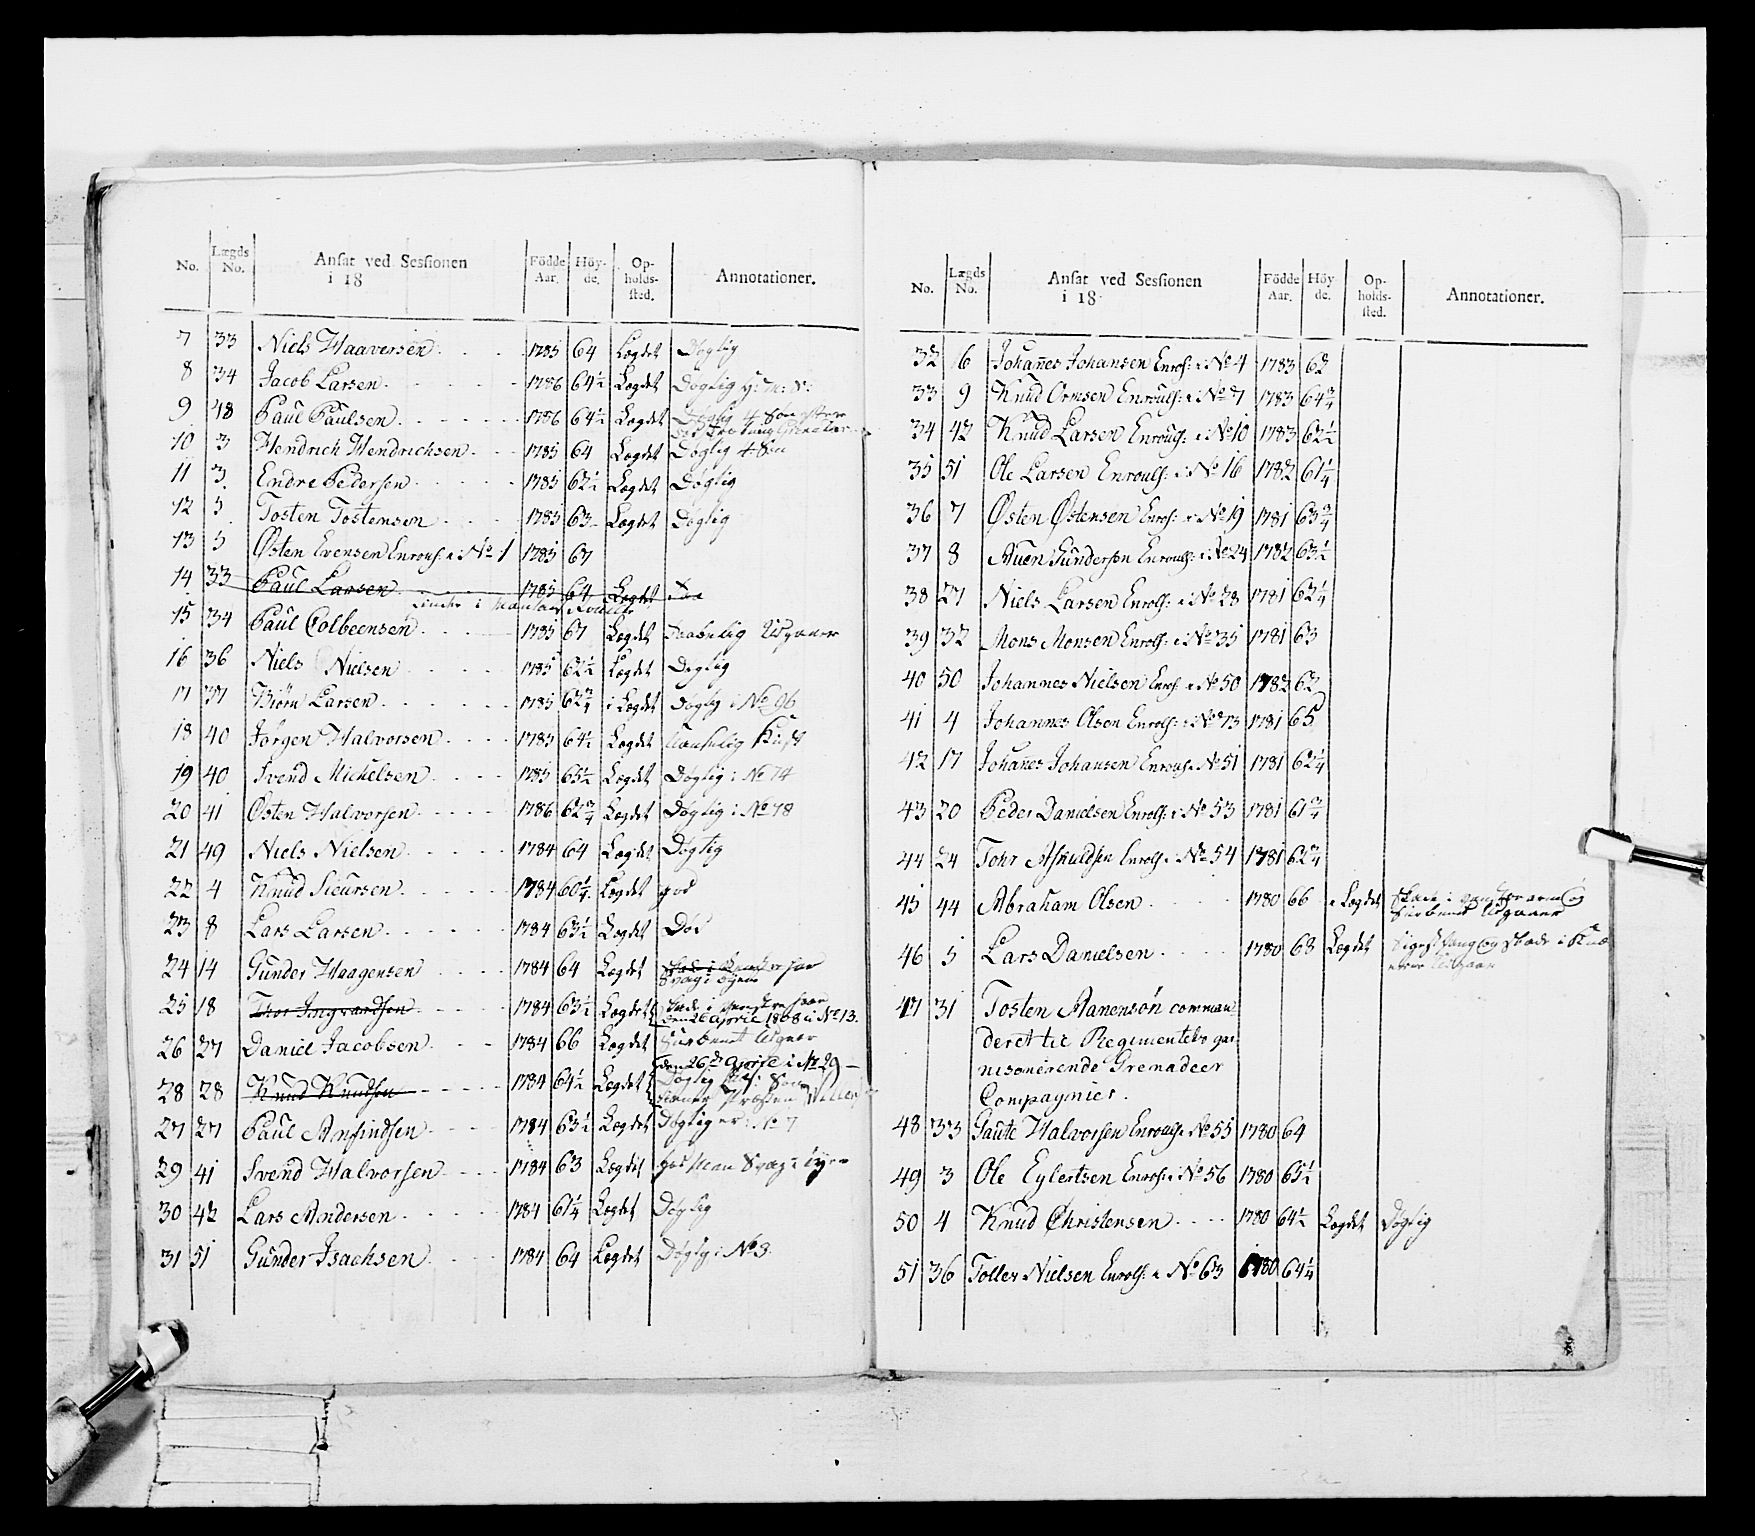 No. Lægds No. Ansat ved Sessionen i 18 Fødde Aar. Höy- de. Op- holds- sted. Annotationer.
7 33 Niels Haaversen 1785 64 Lægdet Døgtig
8 34 Jacob Larsen 1786 64½ Lægdet Døgtig
9 48 Paul Paulsen 1786 64½ Lægdet Døgtig
10 3 Hendrich Hendrichsen 1785 64 Lægdet Døgtig
11 3 Endre Pedersen 1785 62½ Lægdet Døgtig
12 5 Tosten Tostensen 1785 63 Lægdet Døgtig
13 5 Østen Evensen Enroul: i No 1 1785 67
14 33 Paul Larsen 1785 64 Lægdet
15 34 Paul Colbeensen 1785 67 Lægdet Udgaaer
16 36 Niels Nielsen 1785 62½ Lægdet Døgtig
17 37 Biørn Larsen 1785 62¾ i Lægdet Døgtig i No 96
18 40 Jørgen Halvorsen 1785 64½ Lægdet
19 40 Svend Michelsen 1785 65½ Lægdet Døgtig i No 74
20 41 Østen Halvorsen 1786 62¾ Lægdet Døgtig i No 78
21 49 Niels Nielsen 1784 64 Lægdet Døgtig
22 4 Knud Siursen 1784 60¼ Lægdet god
23 8 Lars Larsen 1784 63½ Lægdet Død
24 14 Gunder Haagensen 1784 64 Lægdet
Svag i Øyne
25 18 Thor Ingvardsen 1784 63½ Lægdet
den 26 April 1808 i No 13.
26 27 Daniel Jacobsen 1784 66 Lægdet
den 26de April i No 29
28 28 Knud Knudsen 1784 64½ Lægdet Døgtig
27 27 Paul Anfindsen 1784 63½ Lægdet Døgtig er i No 7
29 41 Svend Halvorsen 1784 63 Lægdet
30 42 Lars Andersen 1784 61¼ Lægdet Døgtig
31 51 Gunder Isachsen 1784 64 Lægdet Døgtig i No 3.
No. Lægds No. Ansat ved Sessionen i 18 Födde Aar. Höy de. Op- holds- sted. Annotationer.
32 6 Johañes Johansen Enrol: i No 4 1783 62
33 9 Knud Ormsen Enroul: i No 7 1783 64¾
34 42 Knud Larsen Enroul: i No 10 1783 62½
35 51 Ole Larsen Enroul: i No 16 1782 61¼
36 7 Østen Østensen Enrol: i No 19 1781 63¾
37 8 Auen Gundersen Enroul: i No 24 1782 63½
38 27 Niels Larsen Enrol: i No 28 1781 62¼
39 32 Mons Monsen Enrol: i No 35 1781 63
40 50 Johannes Nielsen Enrol i No 50 1782 62
41 4 Johannes Olsen Enrol: i No 73 1781 65
42 17 Johañes Johansen Enroul i No 51 1781 62¼
43 20 Peder Danielsen Enrol: i No 53 1781 61¾
44 24 Tohr Askuldsen Enrol i No 54 1781 62¾
45 44 Abraham Olsen 1780 66 i Lægdet
Udgaaer
46 5 Lars Danielsen 1780 68 Lægdet
Udgaaer
47 31 Tosten Aanensøn comman
deret til Regimentets gar
nisonerende Grenadeer
Compagnier.
48 33 Gaute Halvorsen Enroul i No 55 1780 64
49 3 Ole Eylertsen Enrol: i No 56 1780 65½
50 4 Knud Christensen 1780 64½ Lægdet Døgtig
51 36 Tollev Nielsen Enrol: i No 63 1780 64¼